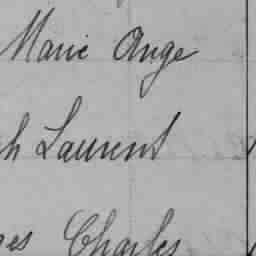 Marie Ange
h Laurent
es Charles